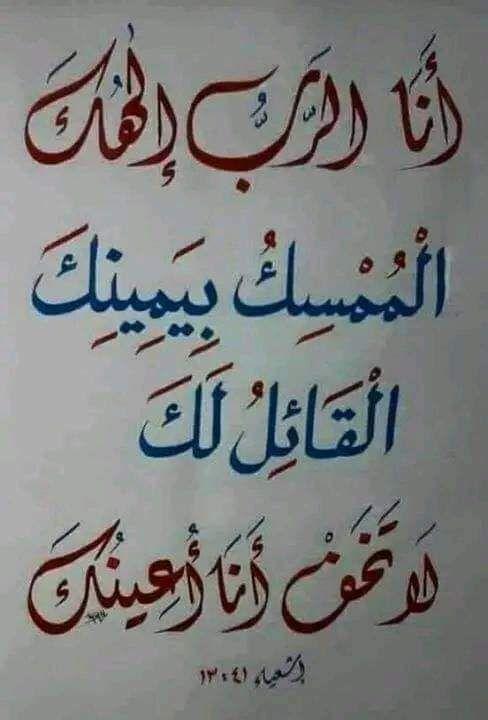 أَنَا الرَّبُّ إِلٰهُكَ
الْمُمْسِكُ بِيَمِينِكَ
الْقَائِلُ لَكَ
لَا تَخَفْ أَنَا أُعِينُكَ
إشعياء ٤١ : ١٣